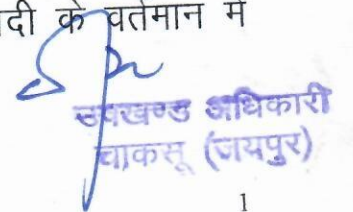 दी के वर्तमान में
उपखण्ड अधिकारी
चाकसू (जयपुर)
1